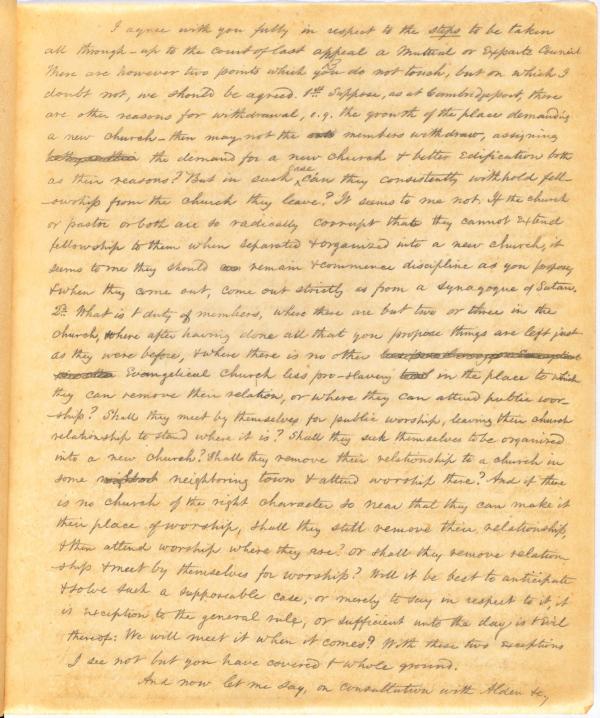 I agree with you fully in respect to the steps to be taken
all through - up to the court of last appeal a Mutual or Exparte Council
There are however two points which you do not touch, but on which I
doubt not, we should be agreed. 1st Suppose, as at Cambridgeport, there
are other reasons for withdrawal, e.g. the growth of the place demanding
a new church - then may not the members withdraw, assigning
the demand for a new church & better Edification both
as their reasons? But in such case can they consistently withhold fell-
-owship from the church they leave? It seems to me not. If the church
or pastor or both are so radically corrupt that they cannot Extend
fellowship to them when separated & organized into a new church, it
seems to me they should remain & commence discipline as you propose,
& when they come out, come out strictly as from a Synagogue of Satan.
2d. What is t duty of members, where there are but two or three in the
church, where after having done all that you propose things are left just
as they were before, & where there is no other
Evangelical Church less pro-slavery in the place to which
they can remove their relation, or where they can attend public wor-
-ship? Shall they meet by themselves for public worship, leaving their church
relationship to stand where it is? Shall they seek themselves to be organized
into a new church? Shall they remove their relationship to a church in
some neighboring town & attend worship there? And if there
is no church of the right character so near that they can make it
their place of worship, shall they still remove their relationship,
& then attend worship where they are? or shall they remove relation
-ship & meet by themselves for worship? Will it be best to anticipate
& solve such a supposable case, or merely to say in respect to it, it
is exception to the general rule, or sufficient unto the day is t Evil
thereof: We will meet it when it comes? With these two exceptions
I see not but you have covered t whole ground.
And now let me say, on consultation with Alden &c,